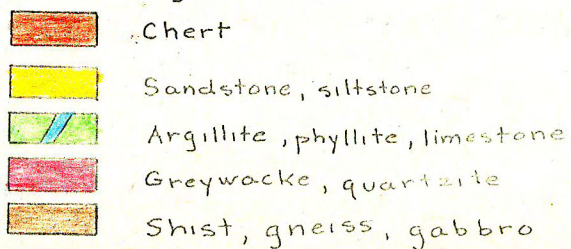 Chert
Sandstone, siltstone
Argillite, phyllite, limestone
Greywacke, quartzite
Shist, gneiss, gabbro